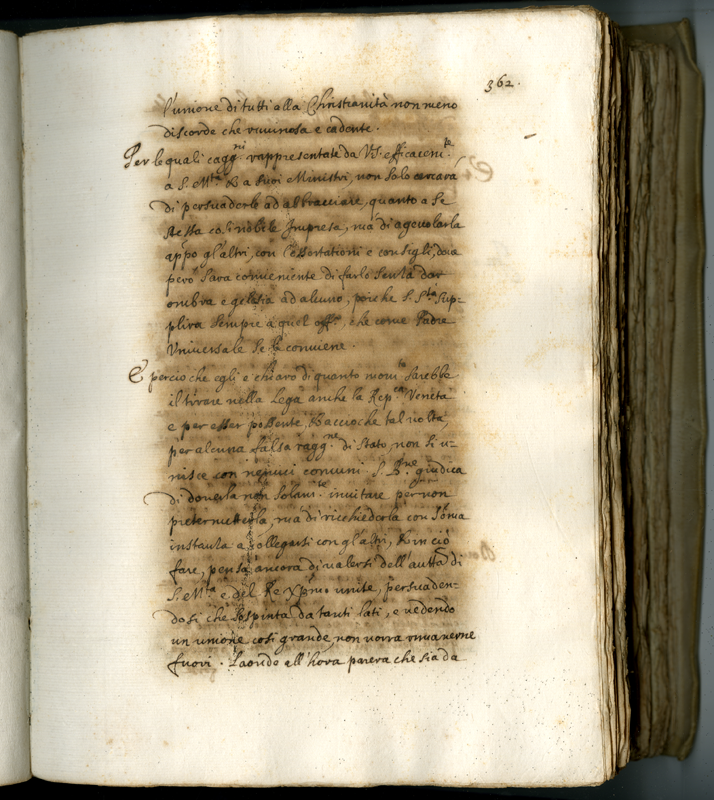 362.
l'unione di tutti alla Christianità non meno
discorde che ruuinosa e cadente.
Per le quali cagg.ni rappresentate da V.S. efficacem.te
a S. M.tà & a suoi Ministri, non solo cercarà
di persuaderle ad abbracciare, quanto a se
stessa così nobile Impresa, mà di ageuolarla
appo gl'altri, con l'essortationi e consigli, doue
però sarà conueniente di farlo senza dar
ombra e gelosia ad alcuno, poiche S. S.tà sup=
plirà sempre à quel off.o, che come Padre
Vniuersale se le conuiene.
E percioche egli e chiaro di quanto mom.to sarebbe
il tirare nella Lega anche la Rep.ca Veneta
e per esser possente, & accioche tal uolta,
per alcuna falsa ragg.ne di stato, non si u=
nisce con nemici comuni. S. B.ne giudica
di douerla non solam.te inuitare per non
pretermetterla, mà di ricchiederla con somma
instanza a collegarsi con gl'altri, & in ciò
fare, pensa ancora di ualersi dell'autt.à di
S. M.tà e del Re Xp̃mo unite, persuaden=
dosi che sospinta da tanti lati, e uedendo
un unione così grande, non uorrà rimanerne
fuori. Laonde all'hora parerà che sia da